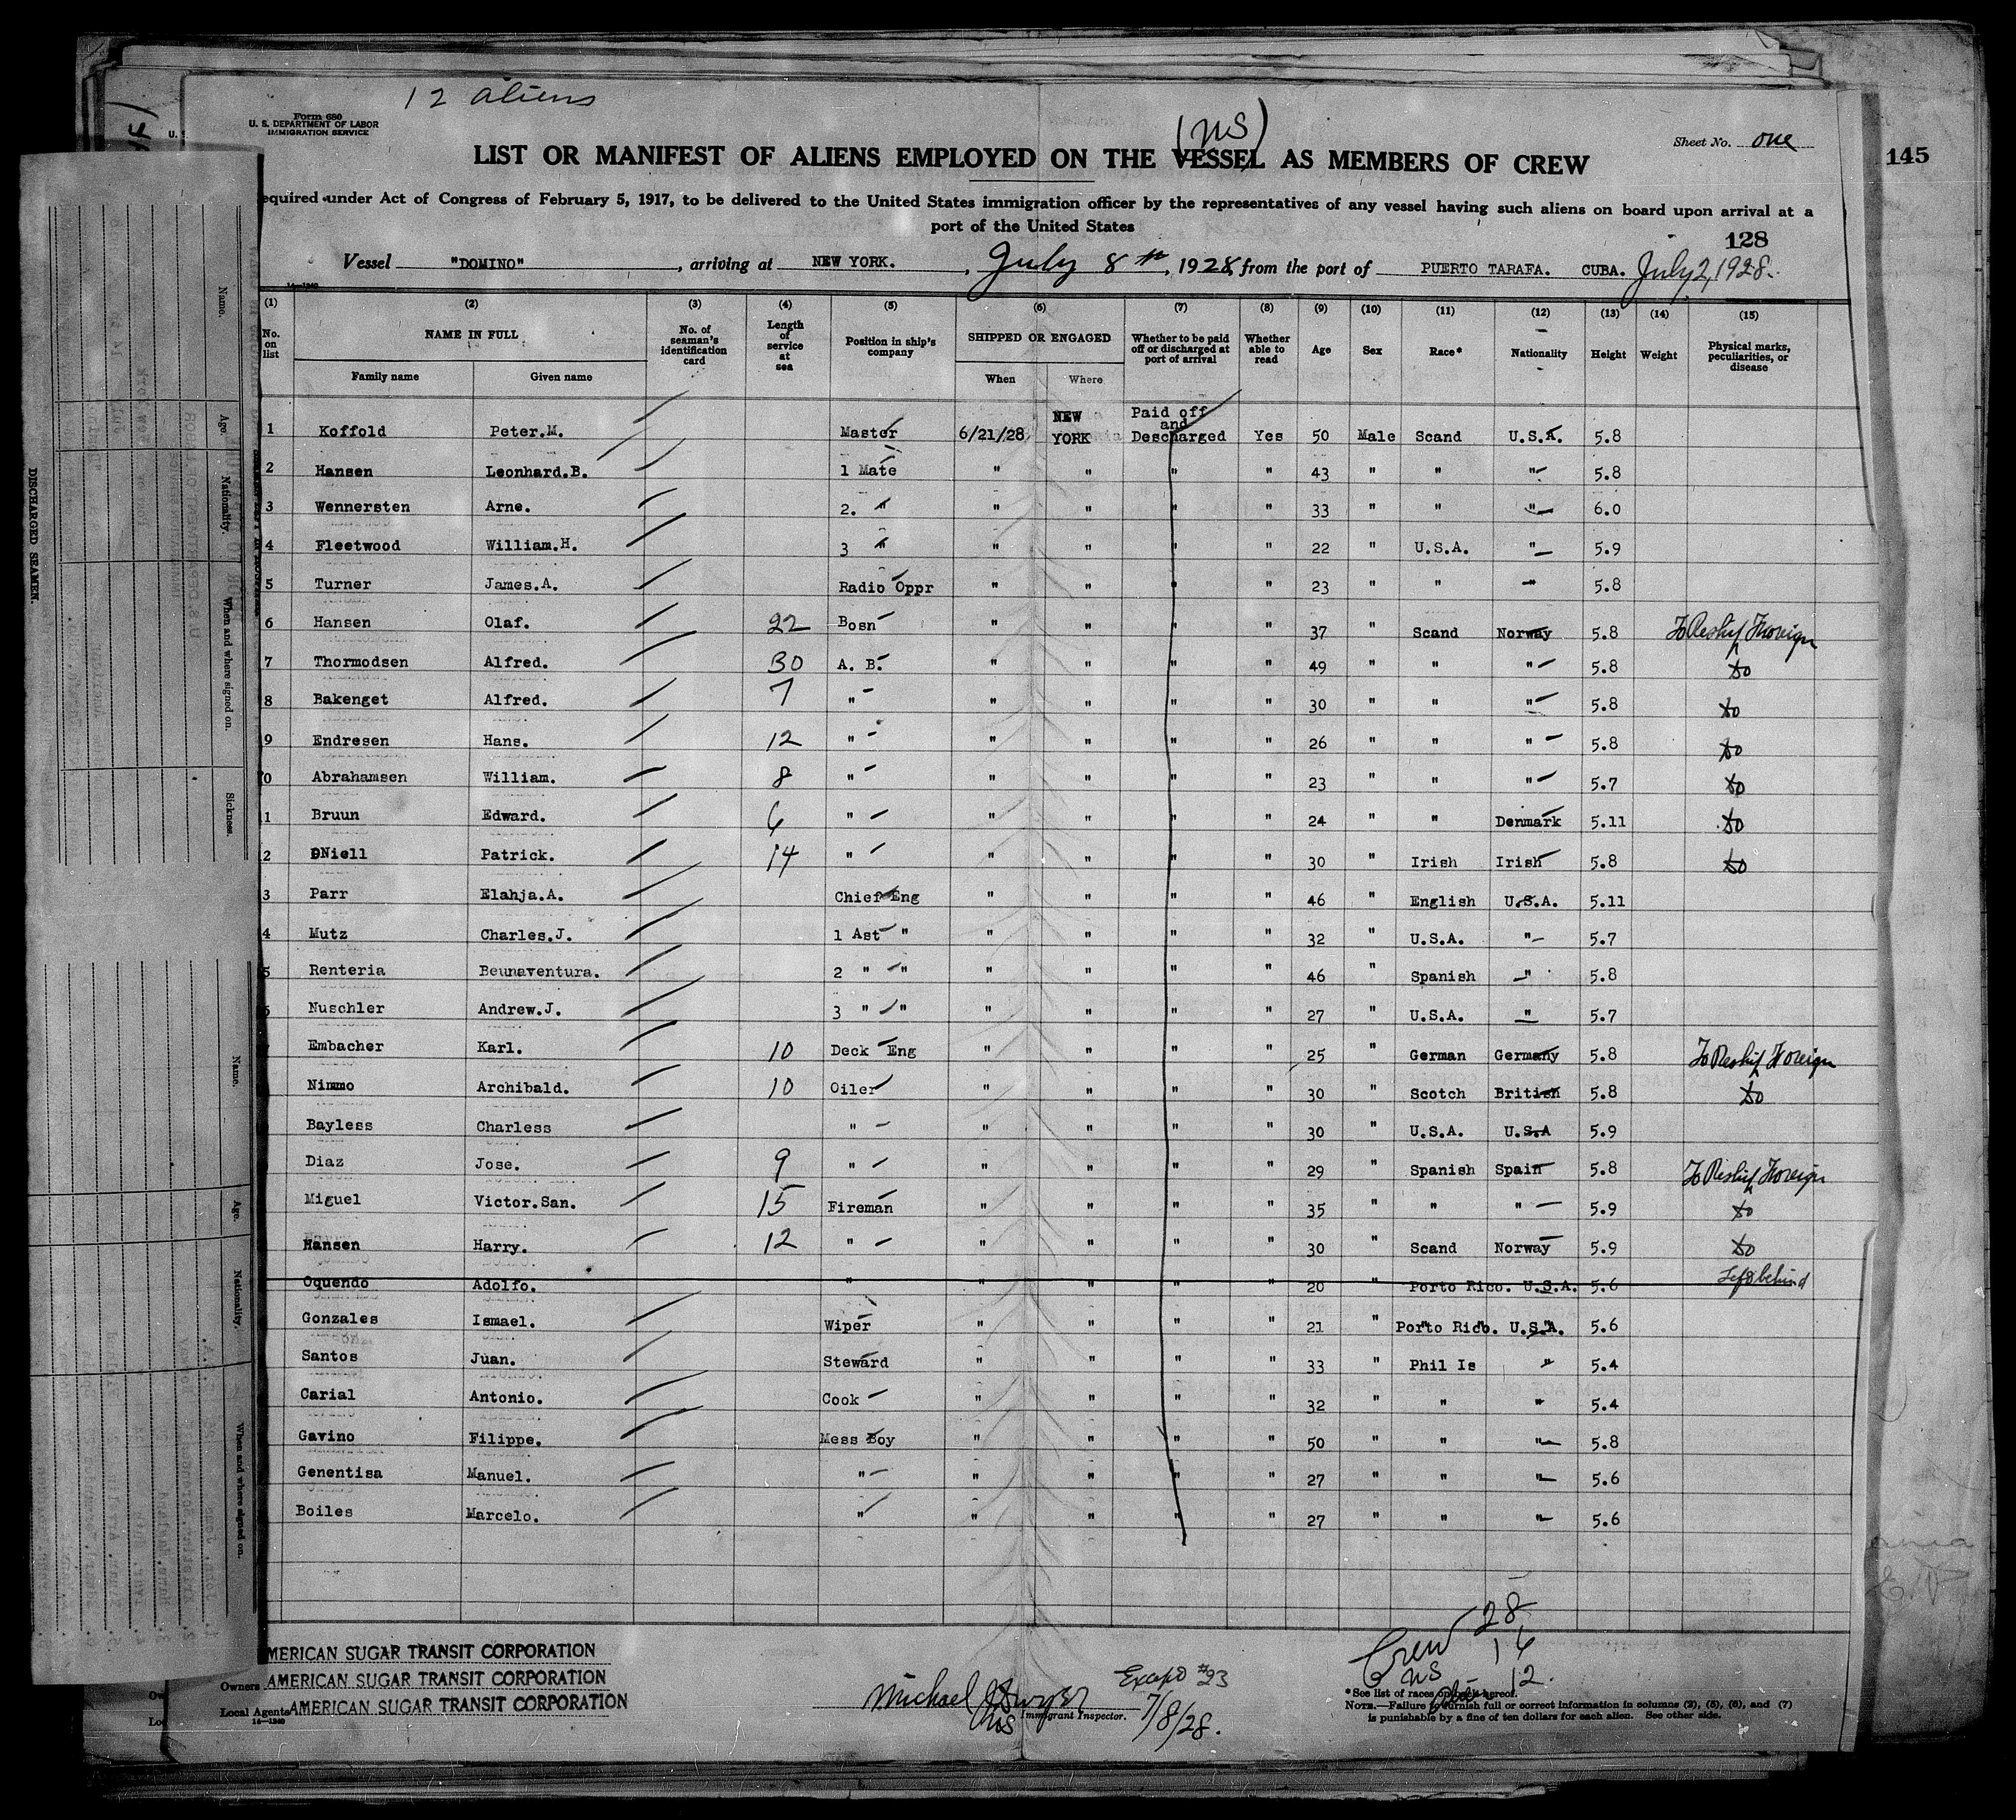 12 aliens
Form 680
U. S. DEPARTMENT OF LABOR
IMMIGRATION SERVICE
(US)
Sheet No. one
145
LIST OR MANIFEST OF ALIENS EMPLOYED ON THE VESSEL AS MEMBERS OF CREW
equired under Act of Congress of February 5, 1917, to be delivered to the United States immigration officer by the representatives of any vessel having such aliens on board upon arrival at a
port of the United States
128
Vessel "DOMINO", arriving at NEW YORK., July 8th, 1928, from the port of PUERTO TARAFA. CUBA. July 2, 1928.
(1) (2) (3) (4) (5) (6) (7) (8) (9) (10) (11) (12) (13) (14) (15)
No. on list NAME IN FULL Family name Given name No. of seaman's identification card Length of service at sea Position in ship's company SHIPPED OR ENGAGED When Where Whether to be paid off or discharged at port of arrival Whether able to read Age Sex Race* Nationality Height Weight Physical marks, peculiarities, or disease
1 Koffold Peter.M. Master 6/21/28 NEW YORK Paid off and Descharged Yes 50 Male Scand U.S.A. 5.8
2 Hansen Leonhard.B. 1 Mate " " " " 43 " " " 5.8
3 Wennersten Arne. 2. " " " " " 33 " " " 6.0
4 Fleetwood William.H. 3 " " " " " 22 " U.S.A. " 5.9
5 Turner James.A. Radio Oppr " " " " 23 " " " 5.8
6 Hansen Olaf. 22 Bosn " " " " 37 " Scand Norway 5.8 To Reship Foreign
7 Thormodsen Alfred. 30 A. B. " " " " 49 " " " 5.8 do
8 Bakenget Alfred. 7 " " " " " 30 " " " 5.8 do
9 Endresen Hans. 12 " " " " " 26 " " " 5.8 do
0 Abrahamsen William. 8 " " " " " 23 " " " 5.7 do
1 Bruun Edward. 6 " " " " " 24 " " Denmark 5.11 do
2 Niell Patrick. 14 " " " " " 30 " Irish Irish 5.8 do
3 Parr Elahja.A. Chief Eng " " " " 46 " English U.S.A. 5.11
4 Mutz Charles.J. 1 Ast " " " " " 32 " U.S.A. " 5.7
5 Renteria Beunaventura. 2 " " " " " " 46 " Spanish " 5.8
6 Nuschler Andrew.J. 3 " " " " " " 27 " U.S.A. " 5.7
Embacher Karl. 10 Deck Eng " " " " 25 " German Germany 5.8 To Reship Foreign
Nimmo Archibald. 10 Oiler " " " " 30 " Scotch British 5.8 do
Bayless Charless " " " " " 30 " U.S.A. U.S.A 5.9
Diaz Jose. 9 " " " " " 29 " Spanish Spain 5.8 To Reship Foreign
Miguel Victor.San. 15 Fireman " " " " 35 " " " 5.9 do
Hansen Harry. 12 " " " " " 30 " Scand Norway 5.9 do
Oquendo Adolfo. " " " " " 20 " Porto Rico. U.S.A. 5.6 Left behind
Gonzales Ismael. Wiper " " " " 21 " Porto Rico. U.S.A. 5.6
Santos Juan. Steward " " " " 33 " Phil Is " 5.4
Carial Antonio. Cook " " " " 32 " " " 5.4
Gavino Filippe. Mess Boy " " " " 50 " " " 5.8
Genentisa Manuel. " " " " " 27 " " " 5.6
Boiles Marcelo. " " " " " 27 " " " 5.6
Crew 28
US 16
12.
MERICAN SUGAR TRANSIT CORPORATION
Owners AMERICAN SUGAR TRANSIT CORPORATION
Local Agents AMERICAN SUGAR TRANSIT CORPORATION
14—1240
Michael
Immigrant Inspector.
#93
7/8/28.
*See list of races on back hereof.
NOTE.—Failure to furnish full or correct information in columns (2), (5), (6), and (7)
is punishable by a fine of ten dollars for each alien. See other side.
DISCHARGED SEAMEN.
Name.
Age.
Nationality.
When and where signed on.
Sickness.
Name.
Age.
Nationality.
When and where signed on.